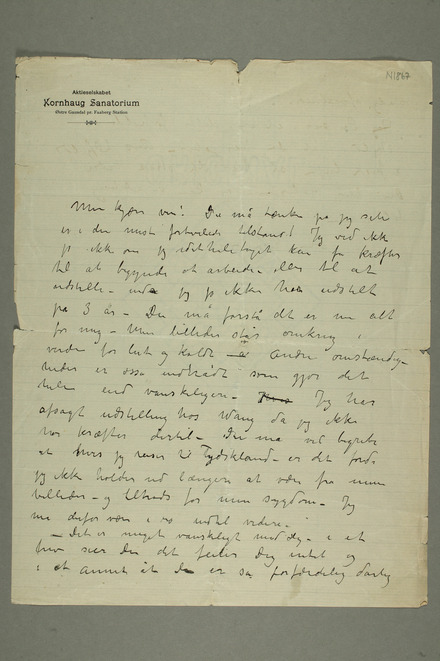 N1867
Aktieselskabet
Kornhaug Sanatorium
Østre Gausdal pr. Faaberg Station
Min kjære ven! Du må tænke på jeg selv
er i den mest fortvilede tilstand! Jeg ved ikke
jo ikke om jeg idethele taget kan få kræfter
til at begynde at arbeide eller til at
udstille – jeg jo ikke har udstilt
på 3 år – Du må forstå det er nu alt
for mig – Mine billeder står omkring i
verden for lut og koldt – Andre omstændig-
heder er også indtrådt som gjør det
hele end vanskeligere – Jeg har
afsagt udstilling hos Wang da jeg ikke
har kræfter dertil – Du må vel begribe
at hvis jeg reiser til Tydskland – er det fordi
jeg ikke holder ud længere at være fra mine
billeder – og tiltrods for min sygdom – Jeg
må derfor være i ro indtil videre –
– Det er meget vanskeligt med Dig – i et
brev sier Du det feiler Dig intet og
i et annet at Du er så forfærdelig dårlig